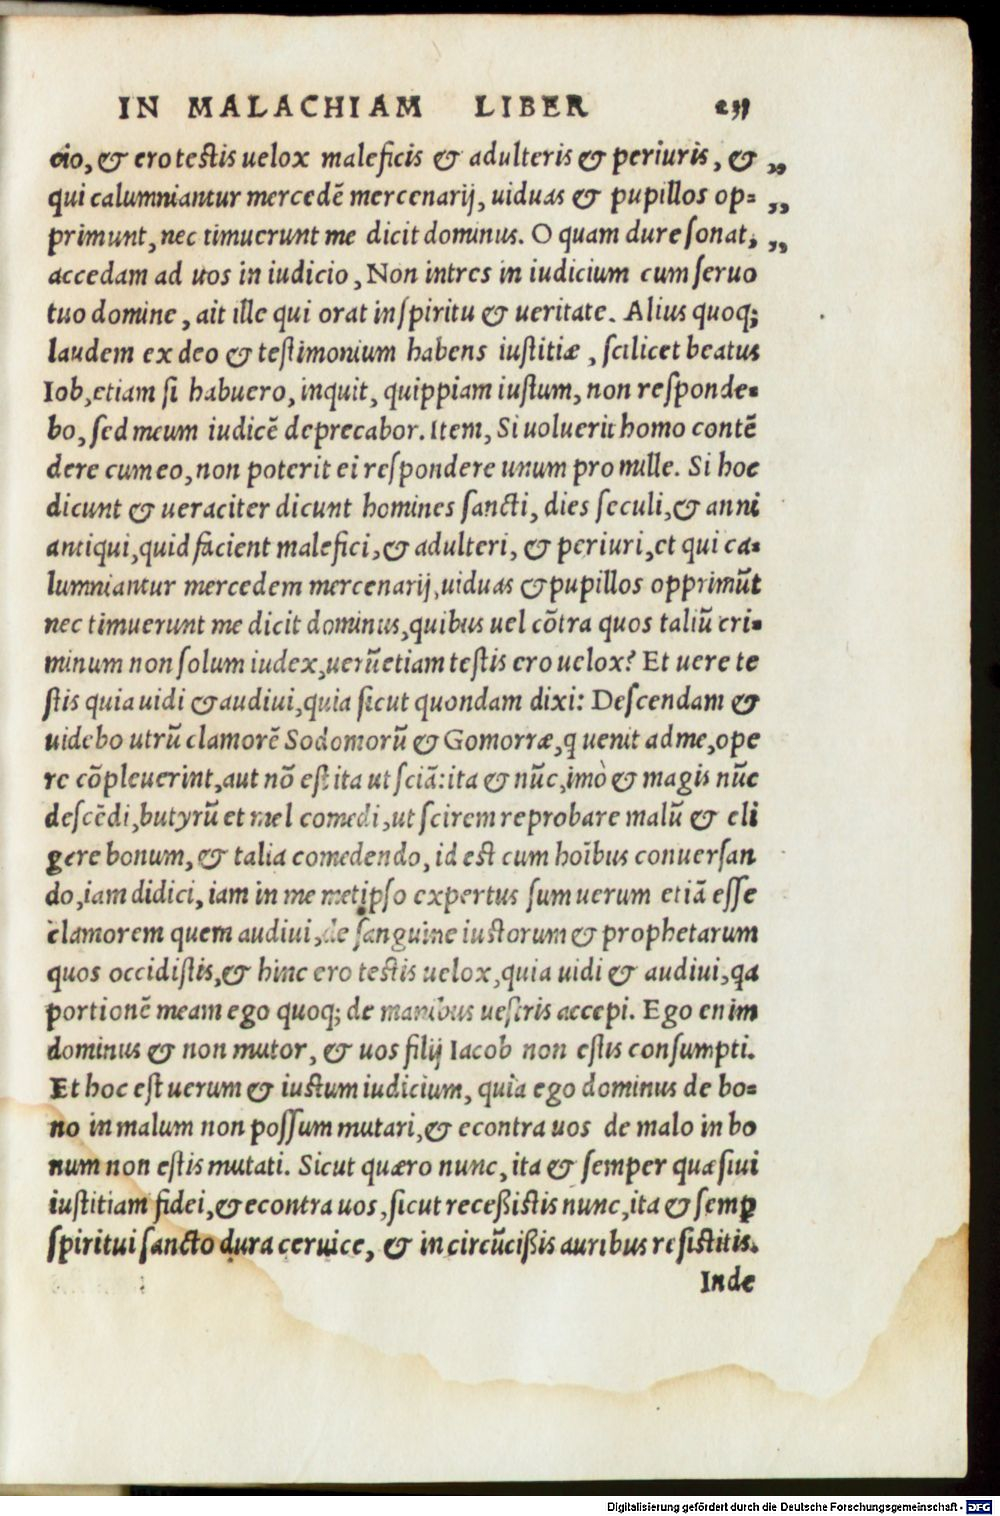 IN MALACHIAM LIBER
cio, & ero testis uelox maleficis & adulteris & periuris, & ,,
qui calumniantur mercedē mercenarij, uiduas & pupillos op= ,,
primunt, nec timuerunt me dicit dominus. O quam dure sonat, ,,
accedam ad uos in iudicio, Non intres in iudicium cum seruo
tuo domine, ait ille qui orat in spiritu & ueritate. Alius quoq;
laudem ex deo & testimonium habens iustitiæ, scilicet beatus
Iob, etiam si habuero, inquit, quippiam iustum, non responde=
bo, sed meum iudicē deprecabor. Item, Si uoluerit homo contē
dere cum eo, non poterit ei respondere unum pro mille. Si hoc
dicunt & ueraciter dicunt homines sancti, dies seculi, & anni
antiqui, quid facient malefici, & adulteri, & periuri, et qui ca=
lumniantur mercedem mercenarij, uiduas & pupillos opprimūt
nec timuerunt me dicit dominus, quibus uel cōtra quos taliū cri=
minum non solum iudex, uerūetiam testis ero uelox? Et uere te
stis quia uidi & audiui, quia sicut quondam dixi: Descendam &
uidebo utrū clamorē Sodomorū & Gomorræ, q uenit ad me, ope
re cōpleuerint, aut nō est ita ut sciā: ita & nūc, imò & magis nūc
descēdi, butyrū et mel comedi, ut scirem reprobare malū & eli
gere bonum, & talia comedendo, id est cum hoībus conuersan
do, iam didici, iam in me metipso expertus sum uerum etiā esse
clamorem quem audiui, de sanguine iustorum & prophetarum
quos occidistis, & hinc ero testis uelox, quia uidi & audiui, qa
portionē meam ego quoq; de manibus uestris accepi. Ego enim
dominus & non mutor, & uos filij Iacob non estis consumpti.
Et hoc est uerum & iustum iudicium, quia ego dominus de bo=
no in malum non possum mutari, & econtra uos de malo in bo
num non estis mutati. Sicut quæro nunc, ita & semper quæsiui
iustitiam fidei, & econtra uos, sicut recessistis nunc, ita & semꝑ
spiritui sancto dura ceruice, & incircūcißis auribus resistitis.
Inde
Digitalisierung gefördert durch die Deutsche Forschungsgemeinschaft - DFG